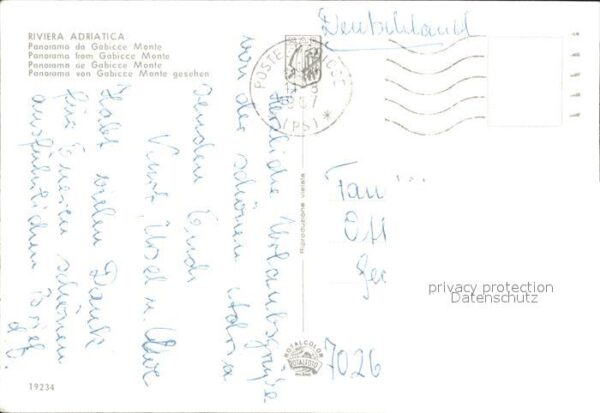 RIVIERA ADRIATICA
Panorama da Gabicce Monte
Panorama from Gabicce Monte
Panorama de Gabicce Monte
Panorama von Gabicce Monte gesehen
Deutschland
POSTE GABICCE
(PS)
Herzliche Urlaubsgrüße
von der schönen Adria
senden Euch
Ursel u. Uwe
Habt vielen Dank
für Eueren schönen
ausführlichen Brief
Riproduzione vietata
Fam
Ott
Ger
7026
privacy protection
Datenschutz
ROTALCOLOR
ROTALFOTO
MILANO
19234